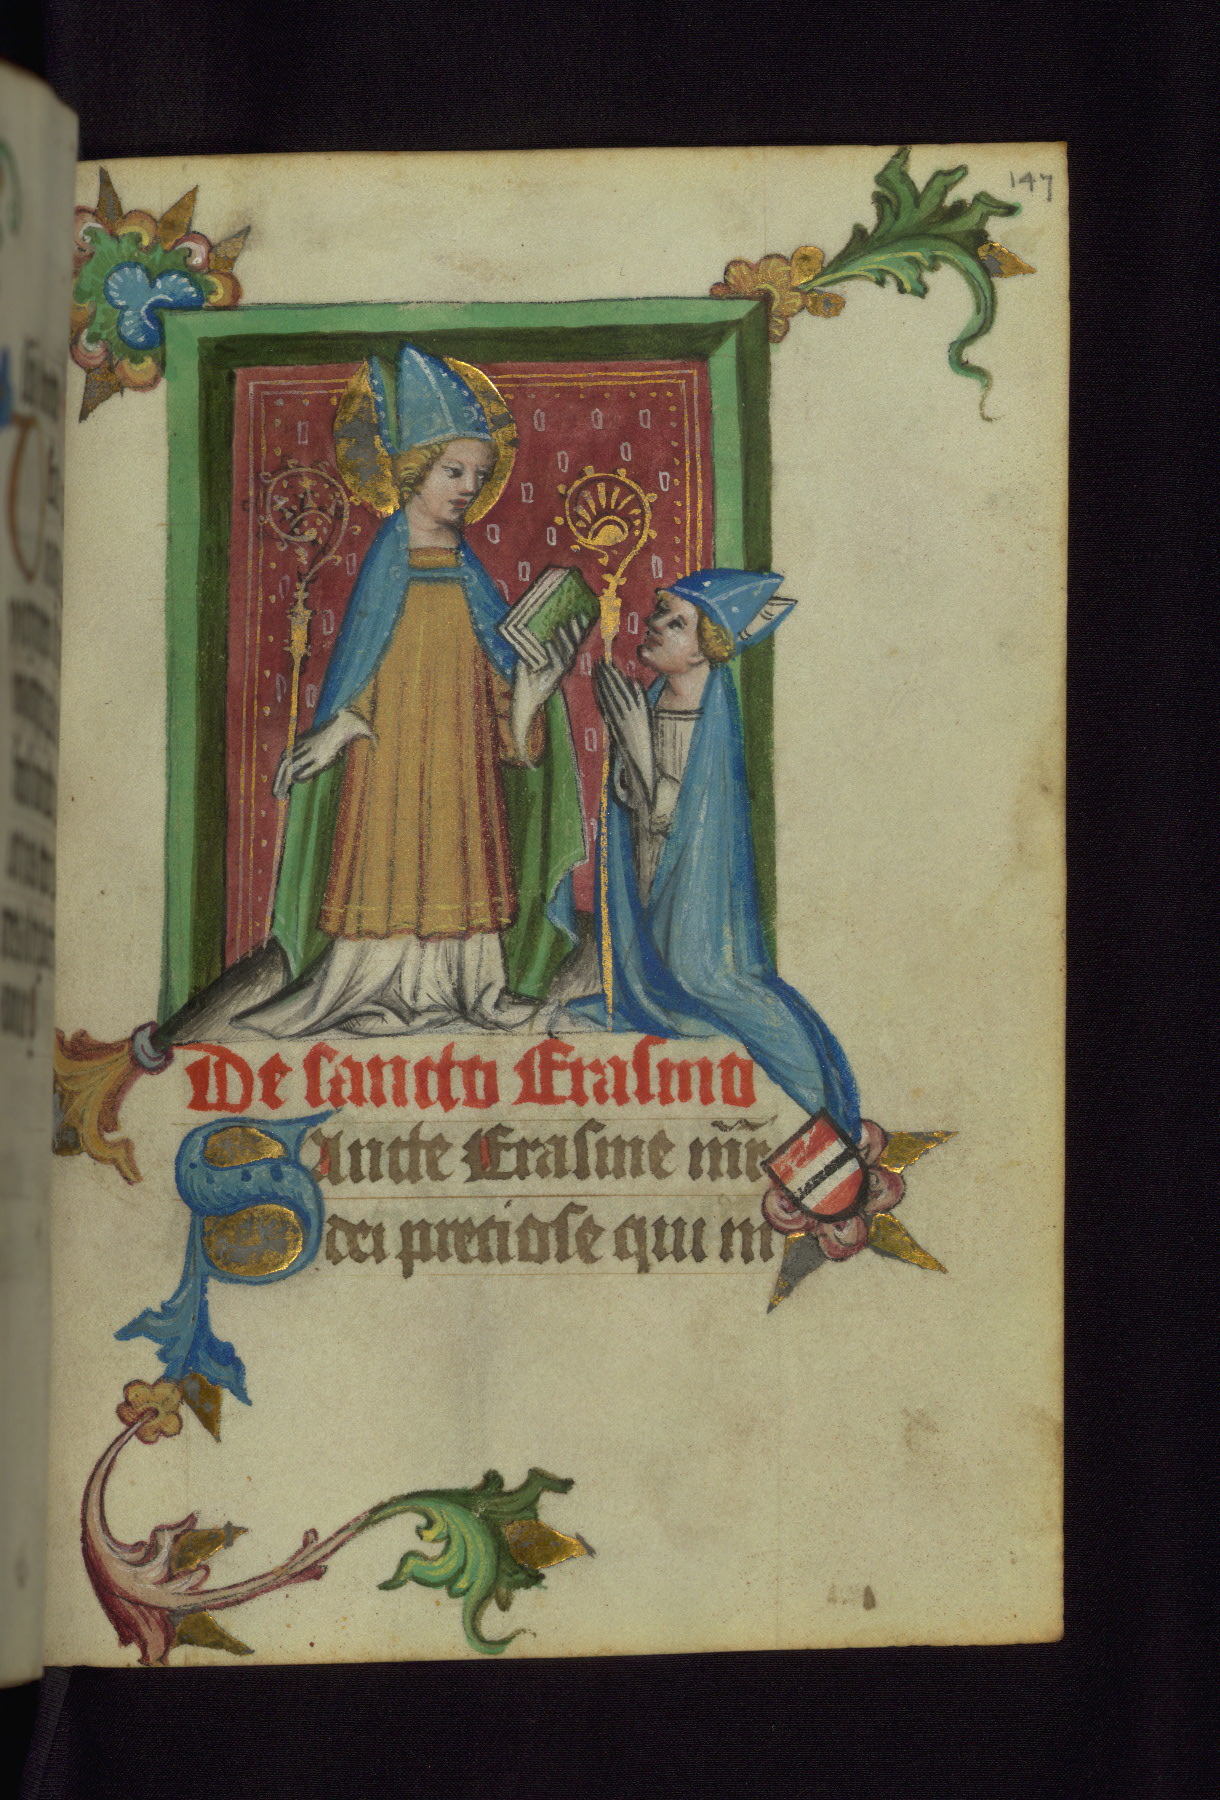 147
De sancto Erasmo
Sancte Erasme mr̄
dei preciose qui in